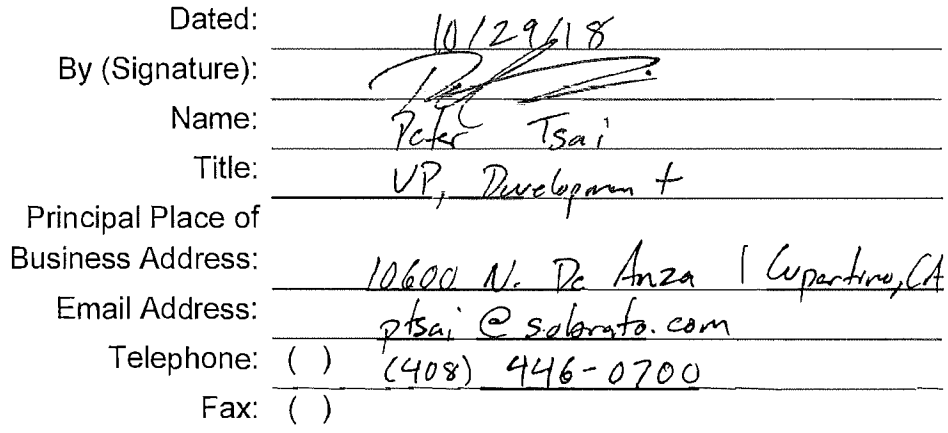 Dated: 10/29/18
By (Signature):
Name: Peter Tsai
Title: VP, Development
Principal Place of
Business Address: 10600 N. De Anza | Cupertino, CA
Email Address: ptsai@sobrato.com
Telephone: ( ) (408) 446-0700
Fax: ( )